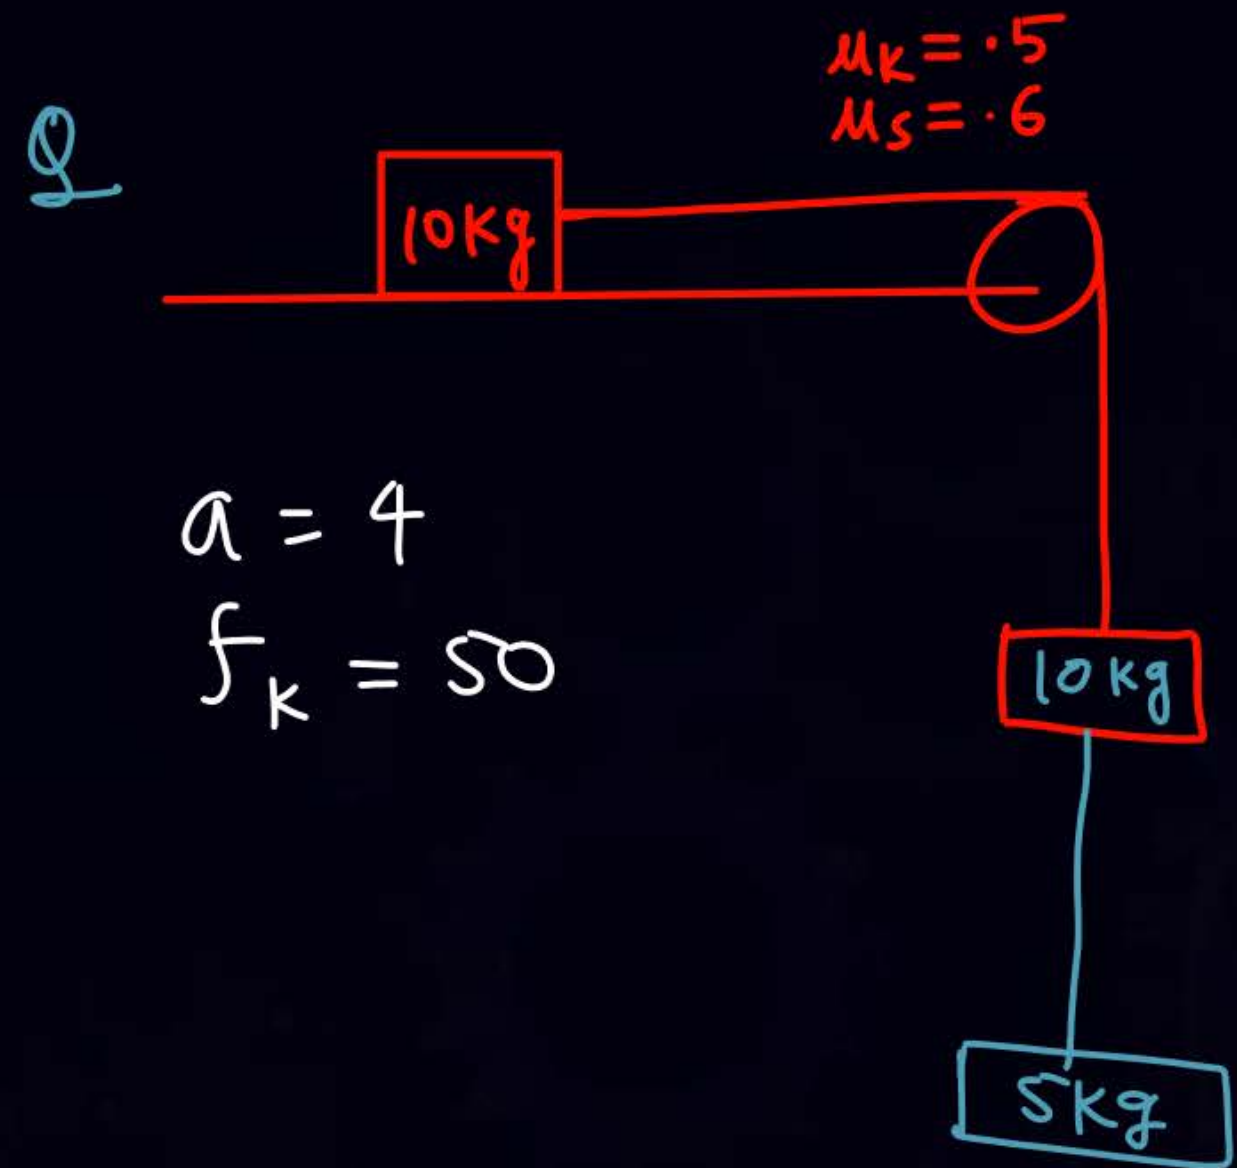 μK = .5
μs = .6
Q
10kg
a = 4
fk = 50
10kg
5kg